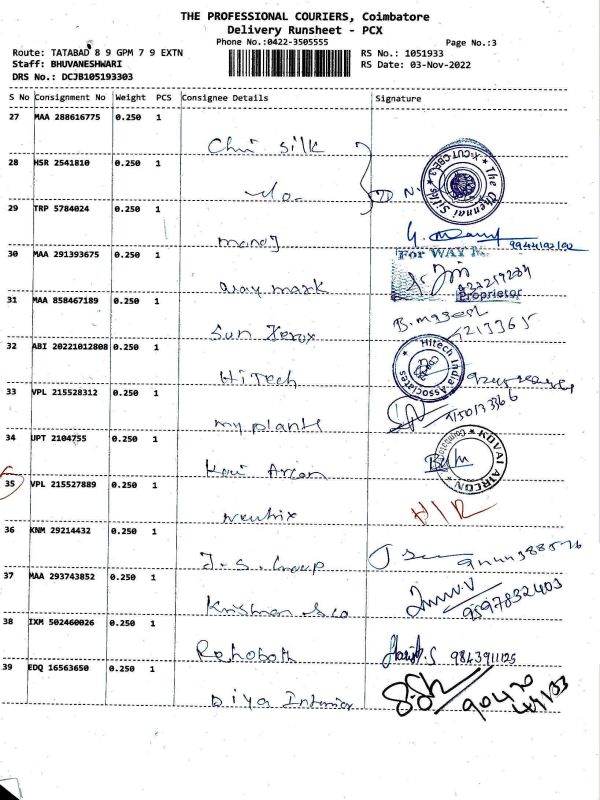 THE PROFESSIONAL COURIERS, Coimbatore
Delivery Runsheet - PCX
Phone No.:0422-3505555
Page No.:3
Route: TATABAD 8 9 GPM 7 9 EXTN
RS No.: 1051933
Staff: BHUVANESHWARI
RS Date: 03-Nov-2022
DRS No.: DCJB105193303
S No Consignment No Weight PCS Consignee Details Signature
27 MAA 288616775 0.250 1
Silk
28 HSR 2541810 0.250 1
The Chennai Silks
29 TRP 5784024 0.250 1
manoj
30 MAA 291393675 0.250 1
For WAY M
way mark
Proprietor
31 MAA 858467189 0.250 1
Sun Xerox
32 ABI 20221012808 0.250 1
HiTech
Hitech India Associates
33 VPL 215528312 0.250 1
my plants
34 UPT 2104755 0.250 1
KOVAI AIRCON
35 VPL 215527889 0.250 1
neutrix
36 KNM 29214432 0.250 1
J.S. Group
37 MAA 293743852 0.250 1
Krishna &co
9597832403
38 IXM 502460026 0.250 1
Rehoboth
9843911125
39 EDQ 16563650 0.250 1
Diya Interior